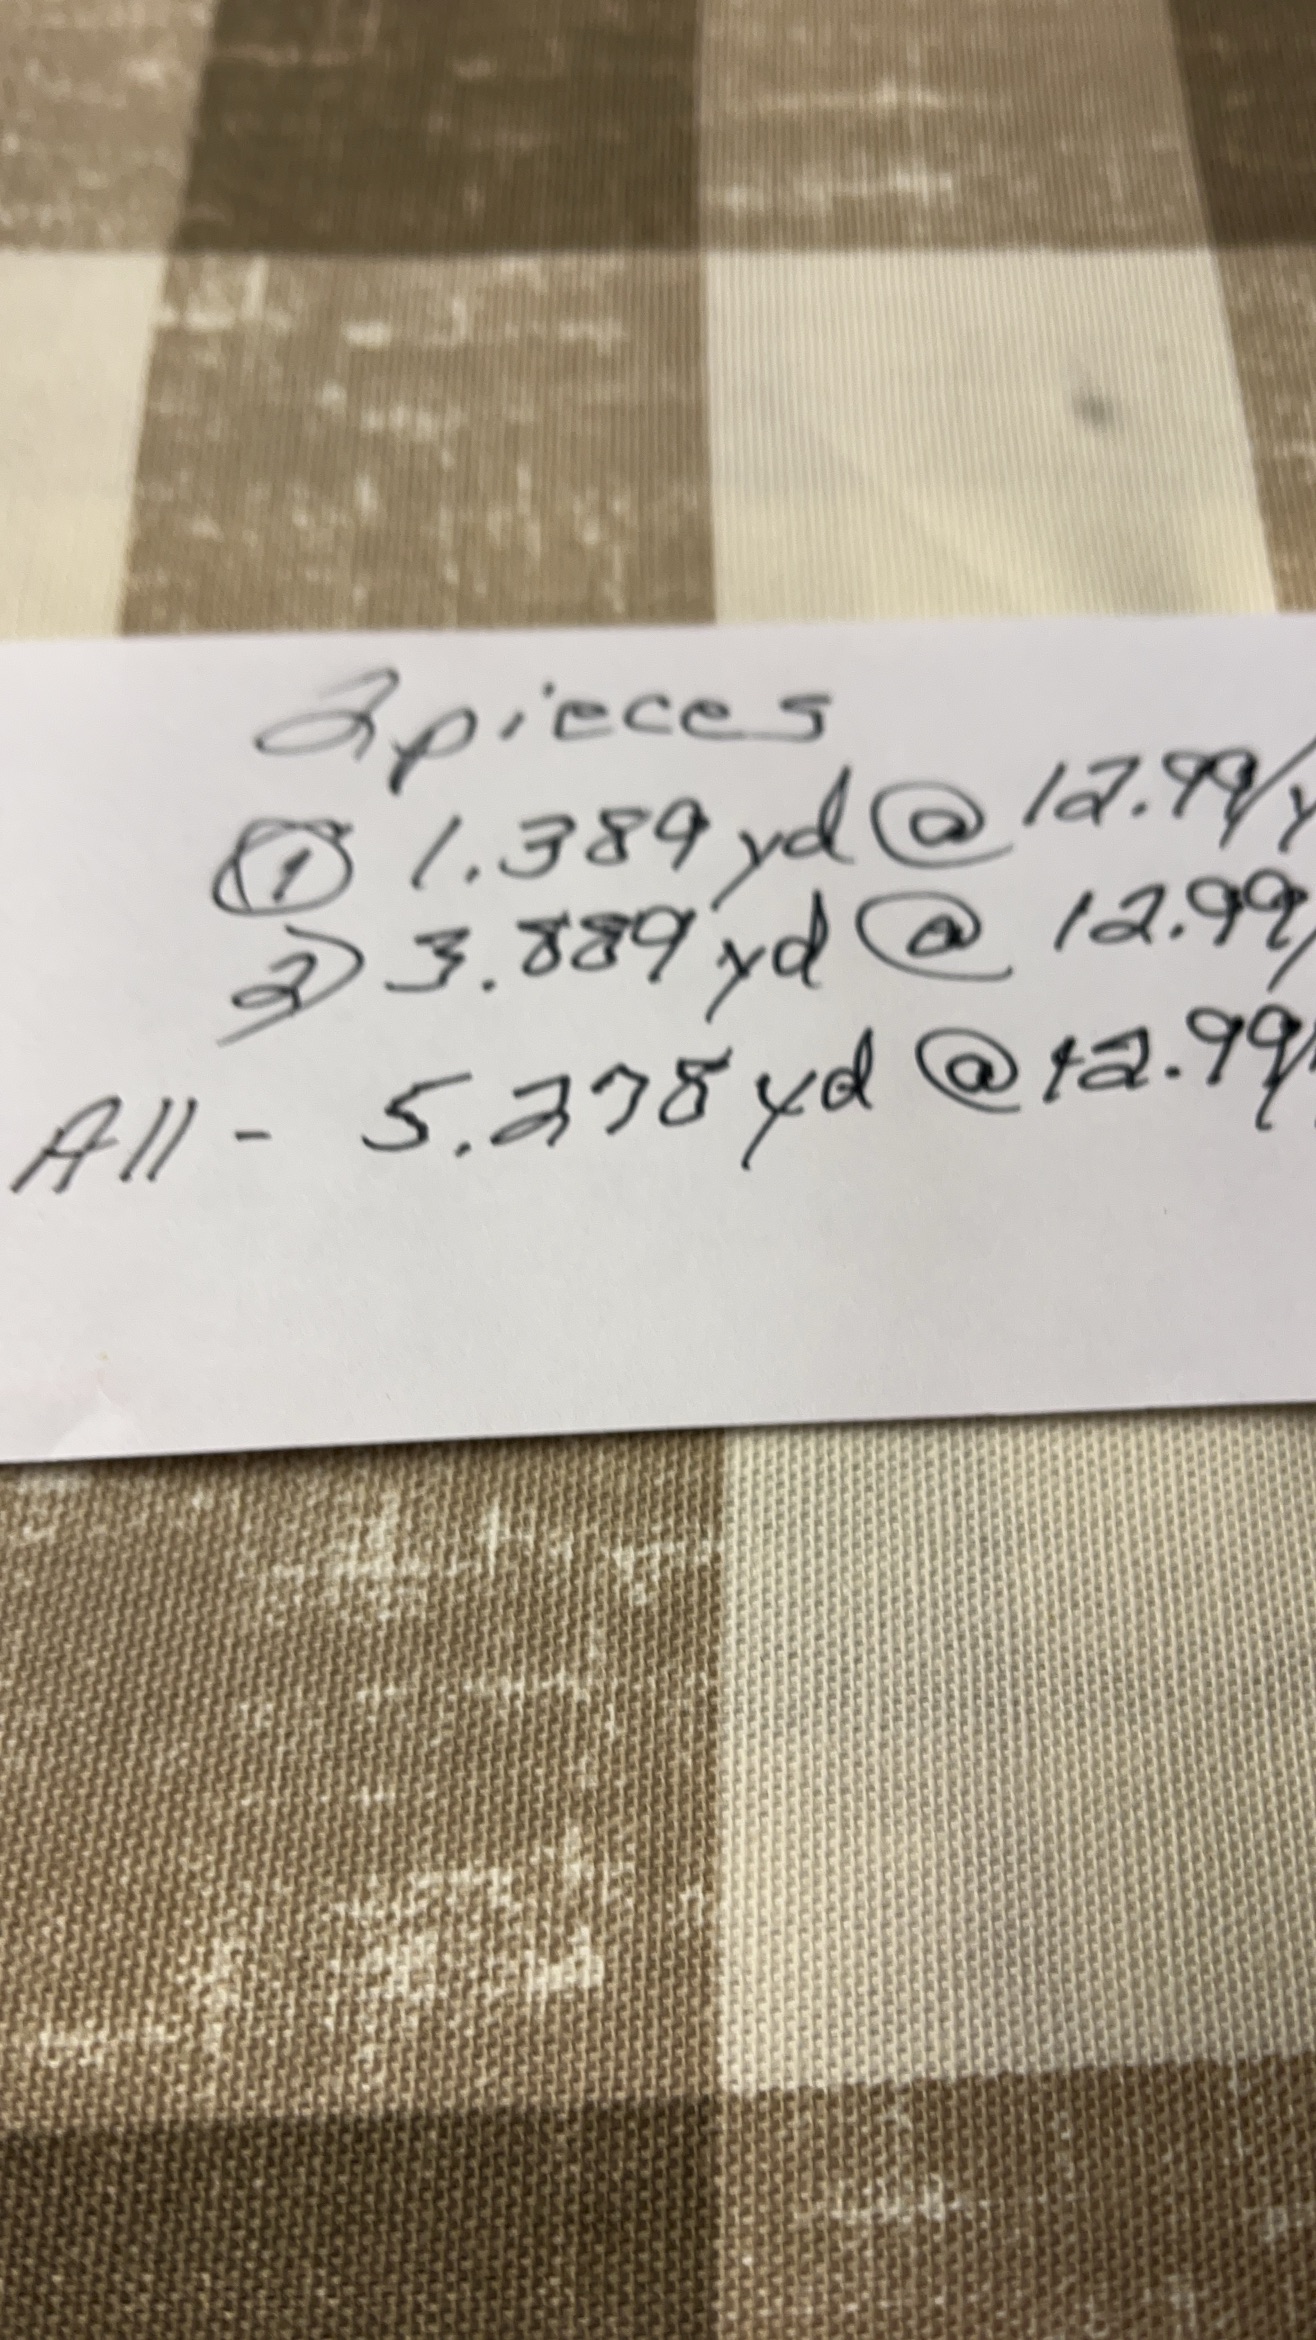 2 pieces
① 1.389 yd @ 12.99/y
2) 3.889 yd @ 12.99/
All - 5.278 yd @ 12.99/